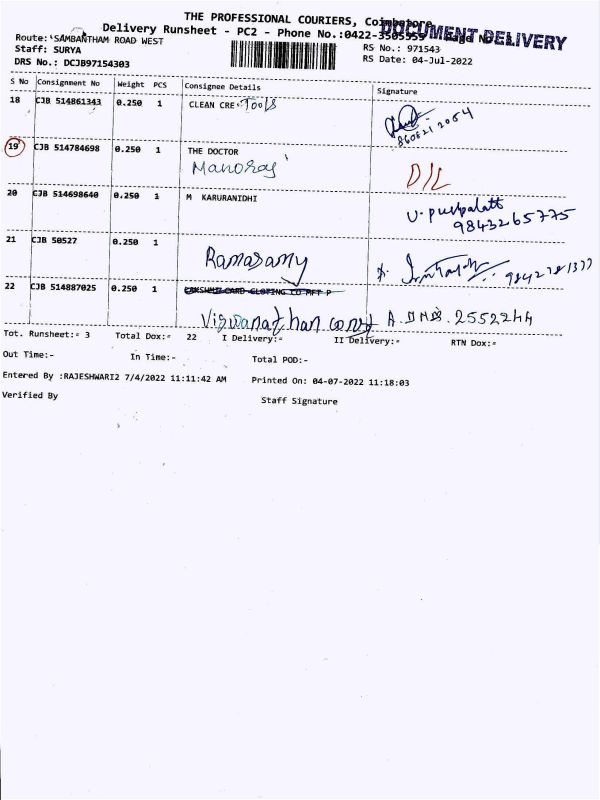 THE PROFESSIONAL COURIERS, Coimbatore
Delivery Runsheet - PC2 - Phone No.:0422-3505555 Page No
DOCUMENT DELIVERY
Route: SAMBANTHAM ROAD WEST
Staff: SURYA
DRS No.: DCJB97154303
RS No.: 971543
RS Date: 04-Jul-2022
S No Consignment No Weight PCS Consignee Details Signature
18 CJB 514861343 0.250 1 CLEAN CRE Tools
19 CJB 514784698 0.250 1 THE DOCTOR
Manoraj D/L
20 CJB 514698640 0.250 1 M KARURANIDHI
U. puspalatt
9843265775
21 CJB 50527 0.250 1
Ramasamy
22 CJB 514887025 0.250 1 LAKSHMI CARD CLOTING CO MFT P
Viswanathan const 2552244
Tot. Runsheet:- 3 Total Dox:- 22 I Delivery:- II Delivery:- RTN Dox:-
Out Time:- In Time:- Total POD:-
Entered By :RAJESHWARI2 7/4/2022 11:11:42 AM Printed On: 04-07-2022 11:18:03
Verified By Staff Signature